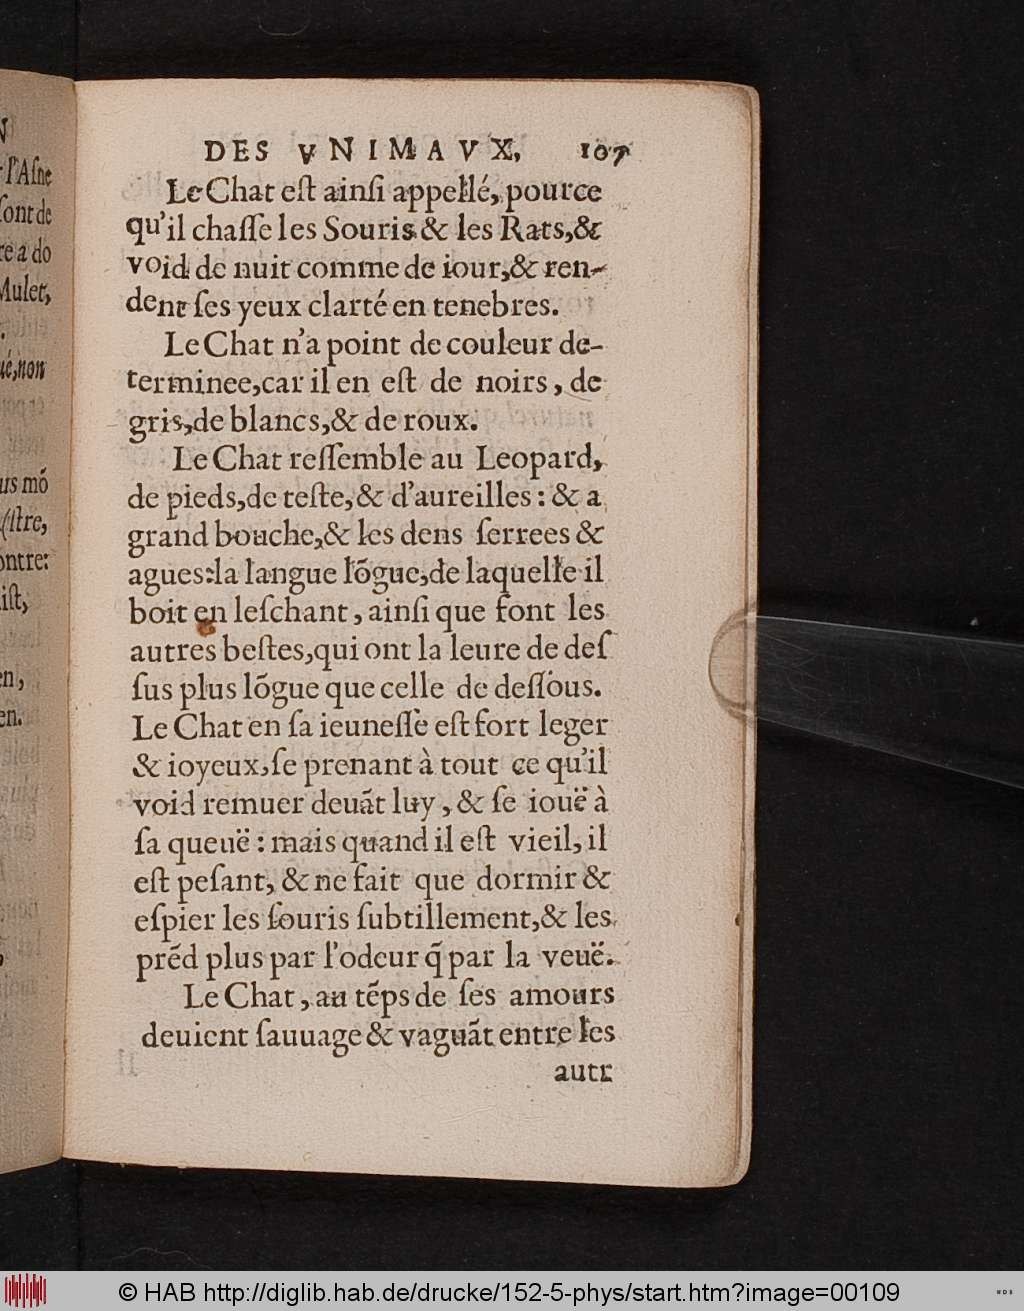 N
l'Aſne
ſont de
re a do
Mulet,
ué, non
us mõ
ſtre,
ontre:
iſt,
en,
en.
DES VNIMAVX, 107
Le Chat eſt ainſi appellé, pource
qu'il chaſſe les Souris & les Rats, &
void de nuit comme de iour, & ren-
dent ſes yeux clarté en tenebres.
Le Chat n'a point de couleur de-
terminee, car il en eſt de noirs, de
gris, de blancs, & de roux.
Le Chat reſſemble au Leopard,
de pieds, de teſte, & d'aureilles: & a
grand bouche, & les dens ſerrees &
agues: la langue lõgue, de laquelle il
boit en leſchant, ainſi que font les
autres beſtes, qui ont la leure de deſ
ſus plus lõgue que celle de deſſous.
Le Chat en ſa ieuneſſe eſt fort leger
& ioyeux, ſe prenant à tout ce qu'il
void remuer deuãt luy, & ſe iouë à
ſa queuë: mais quand il eſt vieil, il
eſt peſant, & ne fait que dormir &
eſpier les ſouris ſubtillement, & les
prẽd plus par l'odeur q̃ par la veuë.
Le Chat, au tẽps de ſes amours
deuient ſauuage & vaguãt entre les
autr
© HAB http://diglib.hab.de/drucke/152-5-phys/start.htm?image=00109